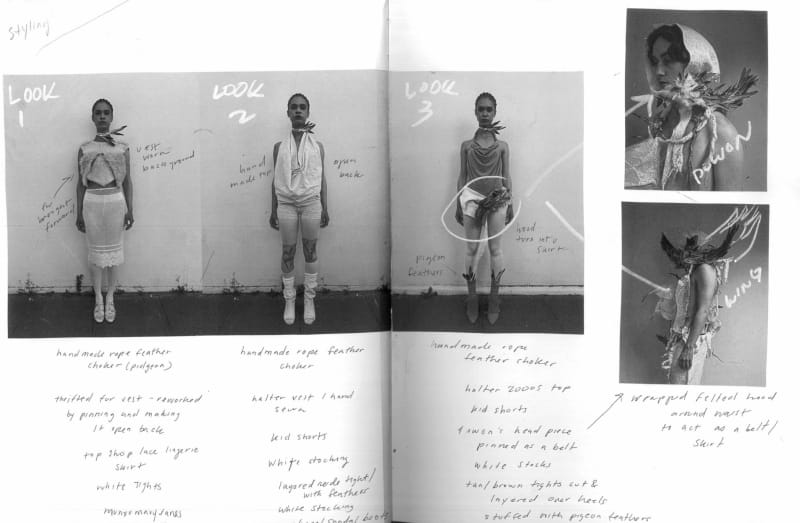 styling
LOOK
1
vest
worn
background
fur
brought
forward
LOOK
2
hand
made top
open
back
LOOK
3
hood
turn into
skirt
pigeon
feathers
WING
handmade rope feather
choker (pidgeon)
thrifted fur vest - reworked
by pinning and making
it open back
top shop lace lingerie
skirt
white tights
handmade rope feather
choker
halter vest / hand
sewn
kid shorts
white stocking
with feathers
white stocking
handmade rope
feather choker
halter 2000s top
kid shorts
head piece
pinned as a belt
white stocks
tan/brown tights cut &
layered over heels
stuffed with pigeon feathers
wrapped felted hood
around waist
to act as a belt/
skirt